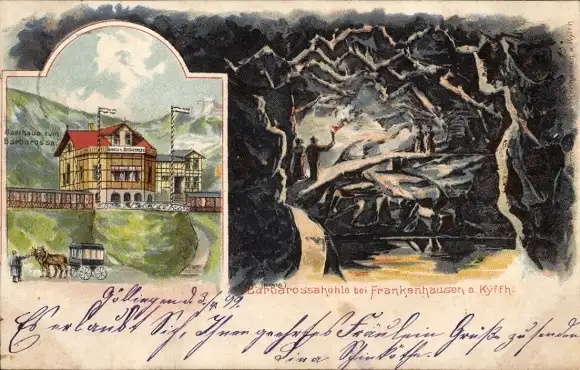 Gasthaus zum
Barbarossa
Barbarossahöhle bei Frankenhausen a. Kyffh.
Göllingen d. 3/4 99.
Es erlaubt Sich, Ihnen geehrtes Fräulein Grüße zu senden
Lina